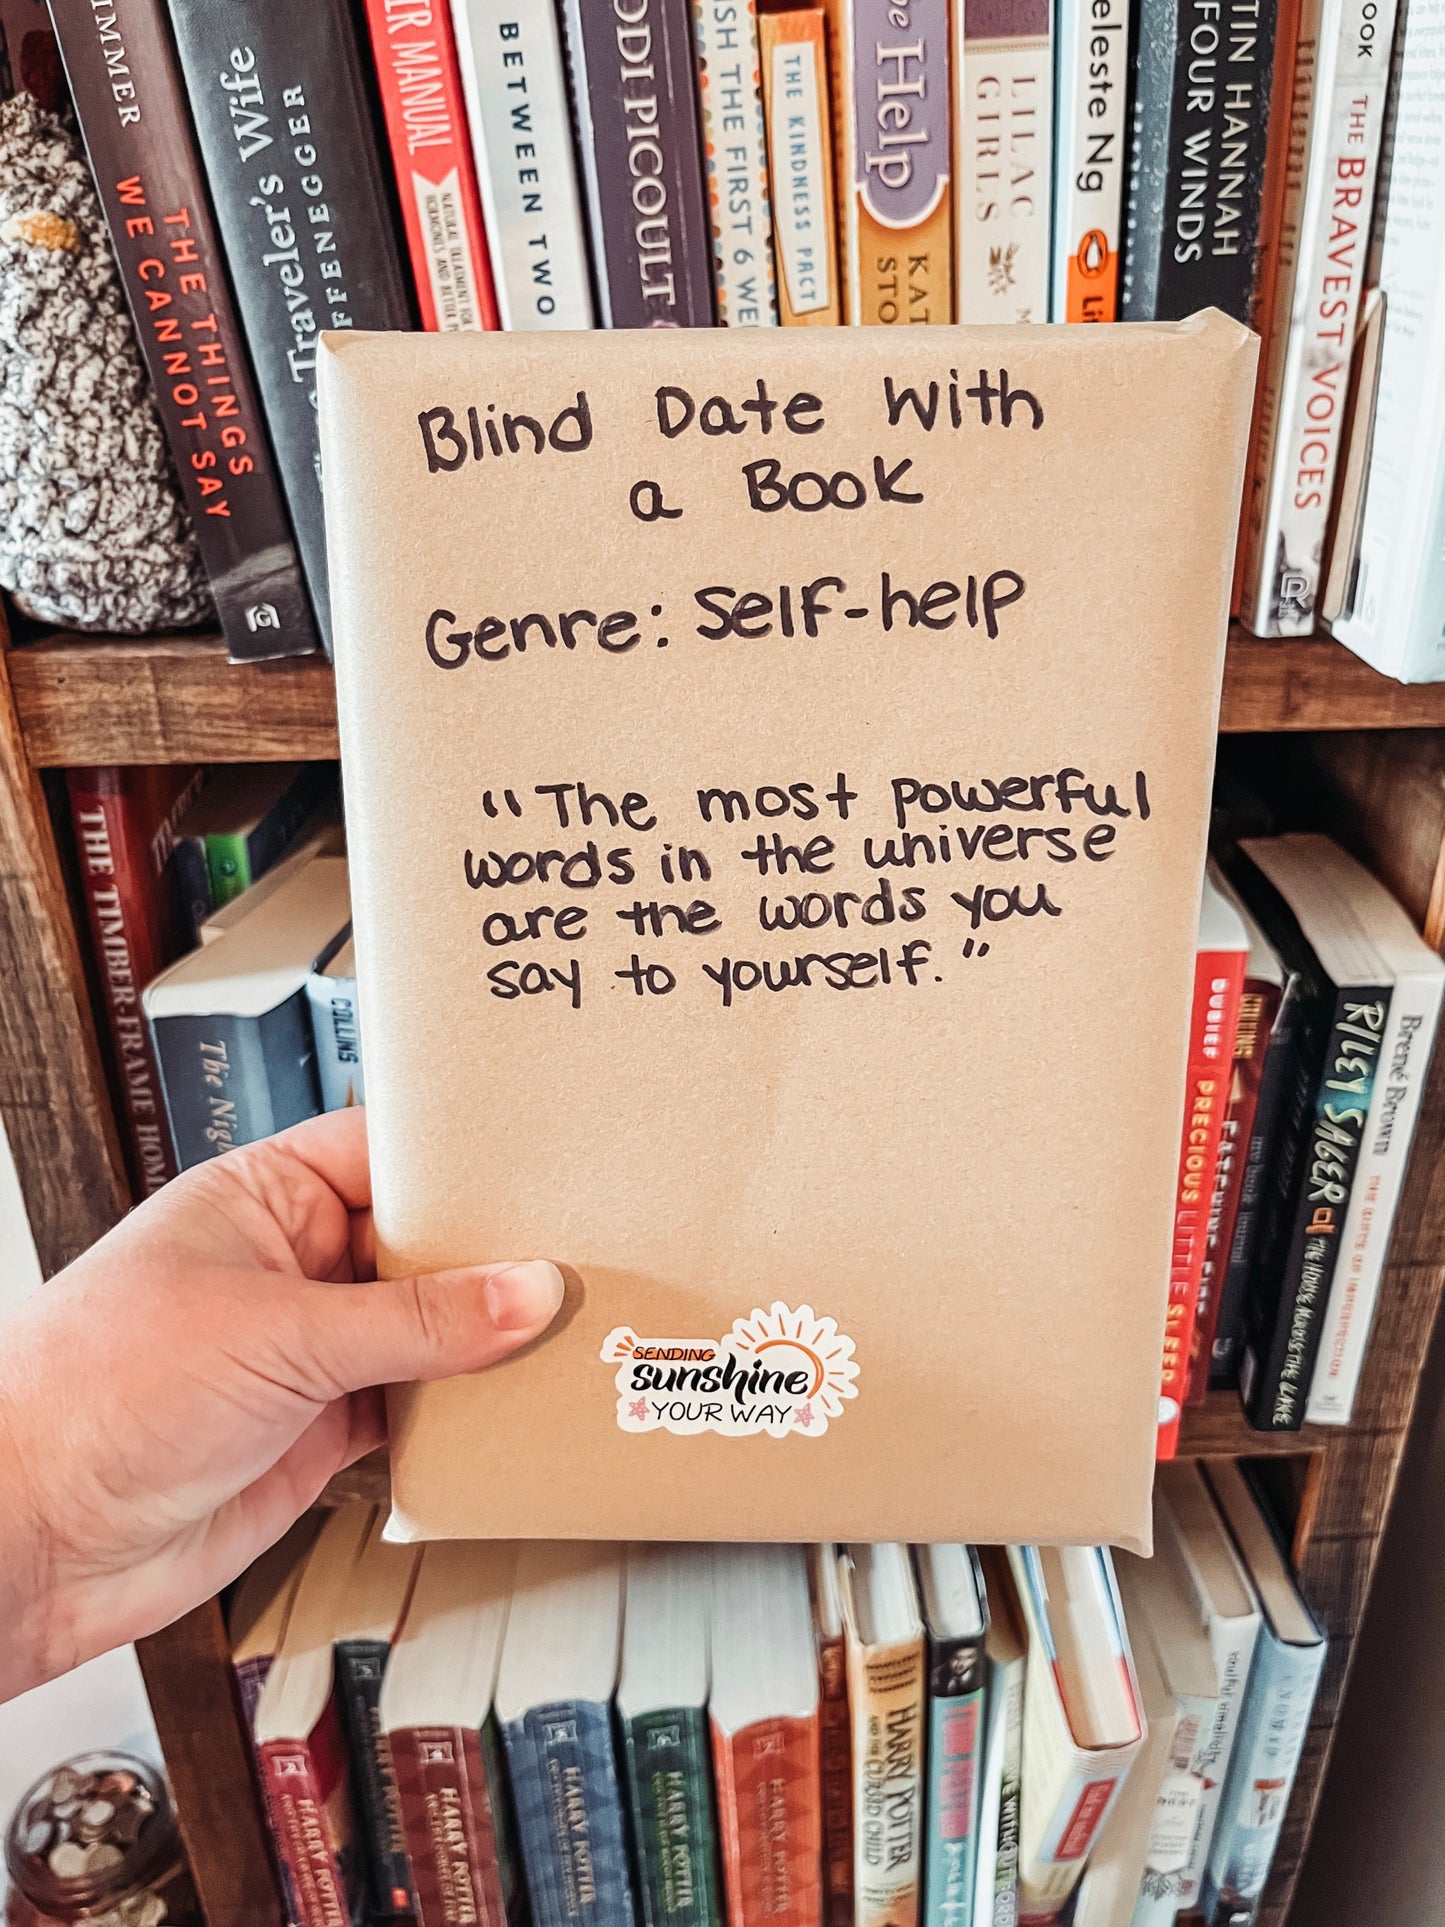 IMMER THE THINGS
WE CANNOT SAY
Traveler's Wife
FFENEGGER
IR MANUAL
NATURAL TREATMENT FOR
HORMONES AND BETTER
BETWEEN TWO
ODI PICOULT
ISH THE FIRST 6 WE
THE KINDNESS PACT
he Help
KAT
STO
LILAC
GIRLS
M
eleste Ng
TIN HANNAH
FOUR WINDS
OOK THE BRAVEST VOICES
Blind Date With
a Book
Genre: Self-help
"The most powerful
words in the universe
are the words you
say to yourself."
SENDING
sunshine
YOUR WAY
THE TIMBER-FRAME HOM
The Nigh
COLLINS
DUBIEF PRECIOUS LITTLE SLEEP
COLLINS CATCHING FIRE
my book journal
RILEY SAGER THE HOUSE ACROSS THE LAKE
Brené Brown THE GIFTS OF IMPERFECTION
HARRY POTTER
HARRY POTTER
HARRY POTTER
HARRY POTTER
HARRY POTTER
HARRY POTTER
HARRY POTTER
AND THE CURSED CHILD
truly simplify